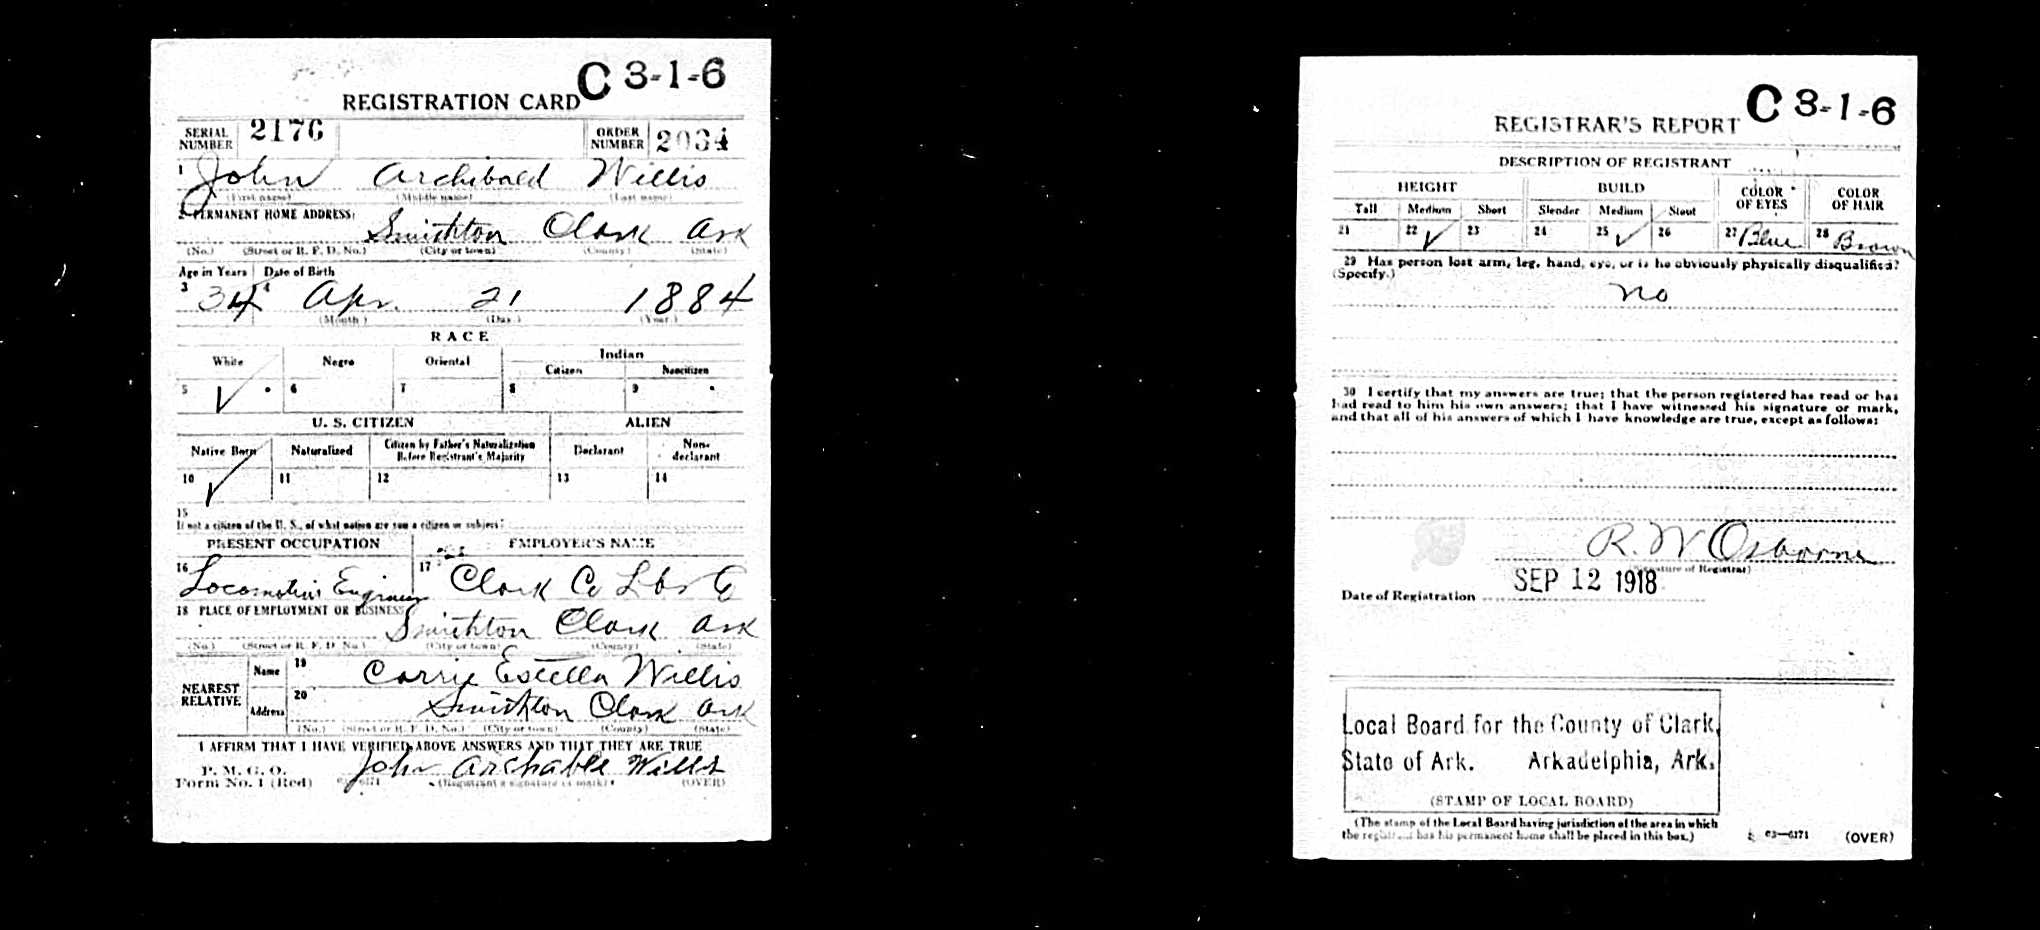 C 3-1-6
REGISTRATION CARD
SERIAL NUMBER 2176 ORDER NUMBER 2034
1 John Archibald Willis
(First name) (Middle name) (Last name)
2 PERMANENT HOME ADDRESS:
Smithton Clark Ark
(No.) (Street or R. F. D. No.) (City or town) (County) (State)
Age in Years Date of Birth
3 34 4 Apr. 21 1884
(Month.) (Day.) (Year.)
RACE
White Negro Oriental Indian
Citizen Noncitizen
5 ✓ 6 7 8 9
U. S. CITIZEN ALIEN
Native Born Naturalized Citizen by Father's Naturalization Before Registrant's Majority Declarant Non-declarant
10 ✓ 11 12 13 14
15
If not a citizen of the U. S., of what nation are you a citizen or subject?
PRESENT OCCUPATION EMPLOYER'S NAME
16 Locomotive Engineer 17 Clark Co Lbr Co
18 PLACE OF EMPLOYMENT OR BUSINESS
Smithton Clark Ark
(No.) (Street or R. F. D. No.) (City or town) (County) (State)
NEAREST RELATIVE Name 19 Carrie Estella Willis
Address 20 Smithton Clark Ark
(No.) (Street or R. F. D. No.) (City or town) (County) (State)
I AFFIRM THAT I HAVE VERIFIED ABOVE ANSWERS AND THAT THEY ARE TRUE
P. M. G. O.
Form No. 1 (Red) John Archable Willis
(Registrant's signature or mark) (OVER)
C 3-1-6
REGISTRAR'S REPORT
DESCRIPTION OF REGISTRANT
HEIGHT BUILD COLOR OF EYES COLOR OF HAIR
Tall Medium Short Slender Medium Stout
21 22 ✓ 23 24 25 ✓ 26 27 Blue 28 Brown
29 Has person lost arm, leg, hand, eye, or is he obviously physically disqualified?
(Specify.)
no
30 I certify that my answers are true; that the person registered has read or has
had read to him his own answers; that I have witnessed his signature or mark,
and that all of his answers of which I have knowledge are true, except as follows:
R. W Osborne
(Signature of Registrar)
Date of Registration SEP 12 1918
Local Board for the County of Clark,
State of Ark. Arkadelphia, Ark.
(STAMP OF LOCAL BOARD)
(The stamp of the Local Board having jurisdiction of the area in which
the registrant has his permanent home shall be placed in this box.)
03—6171 (OVER)